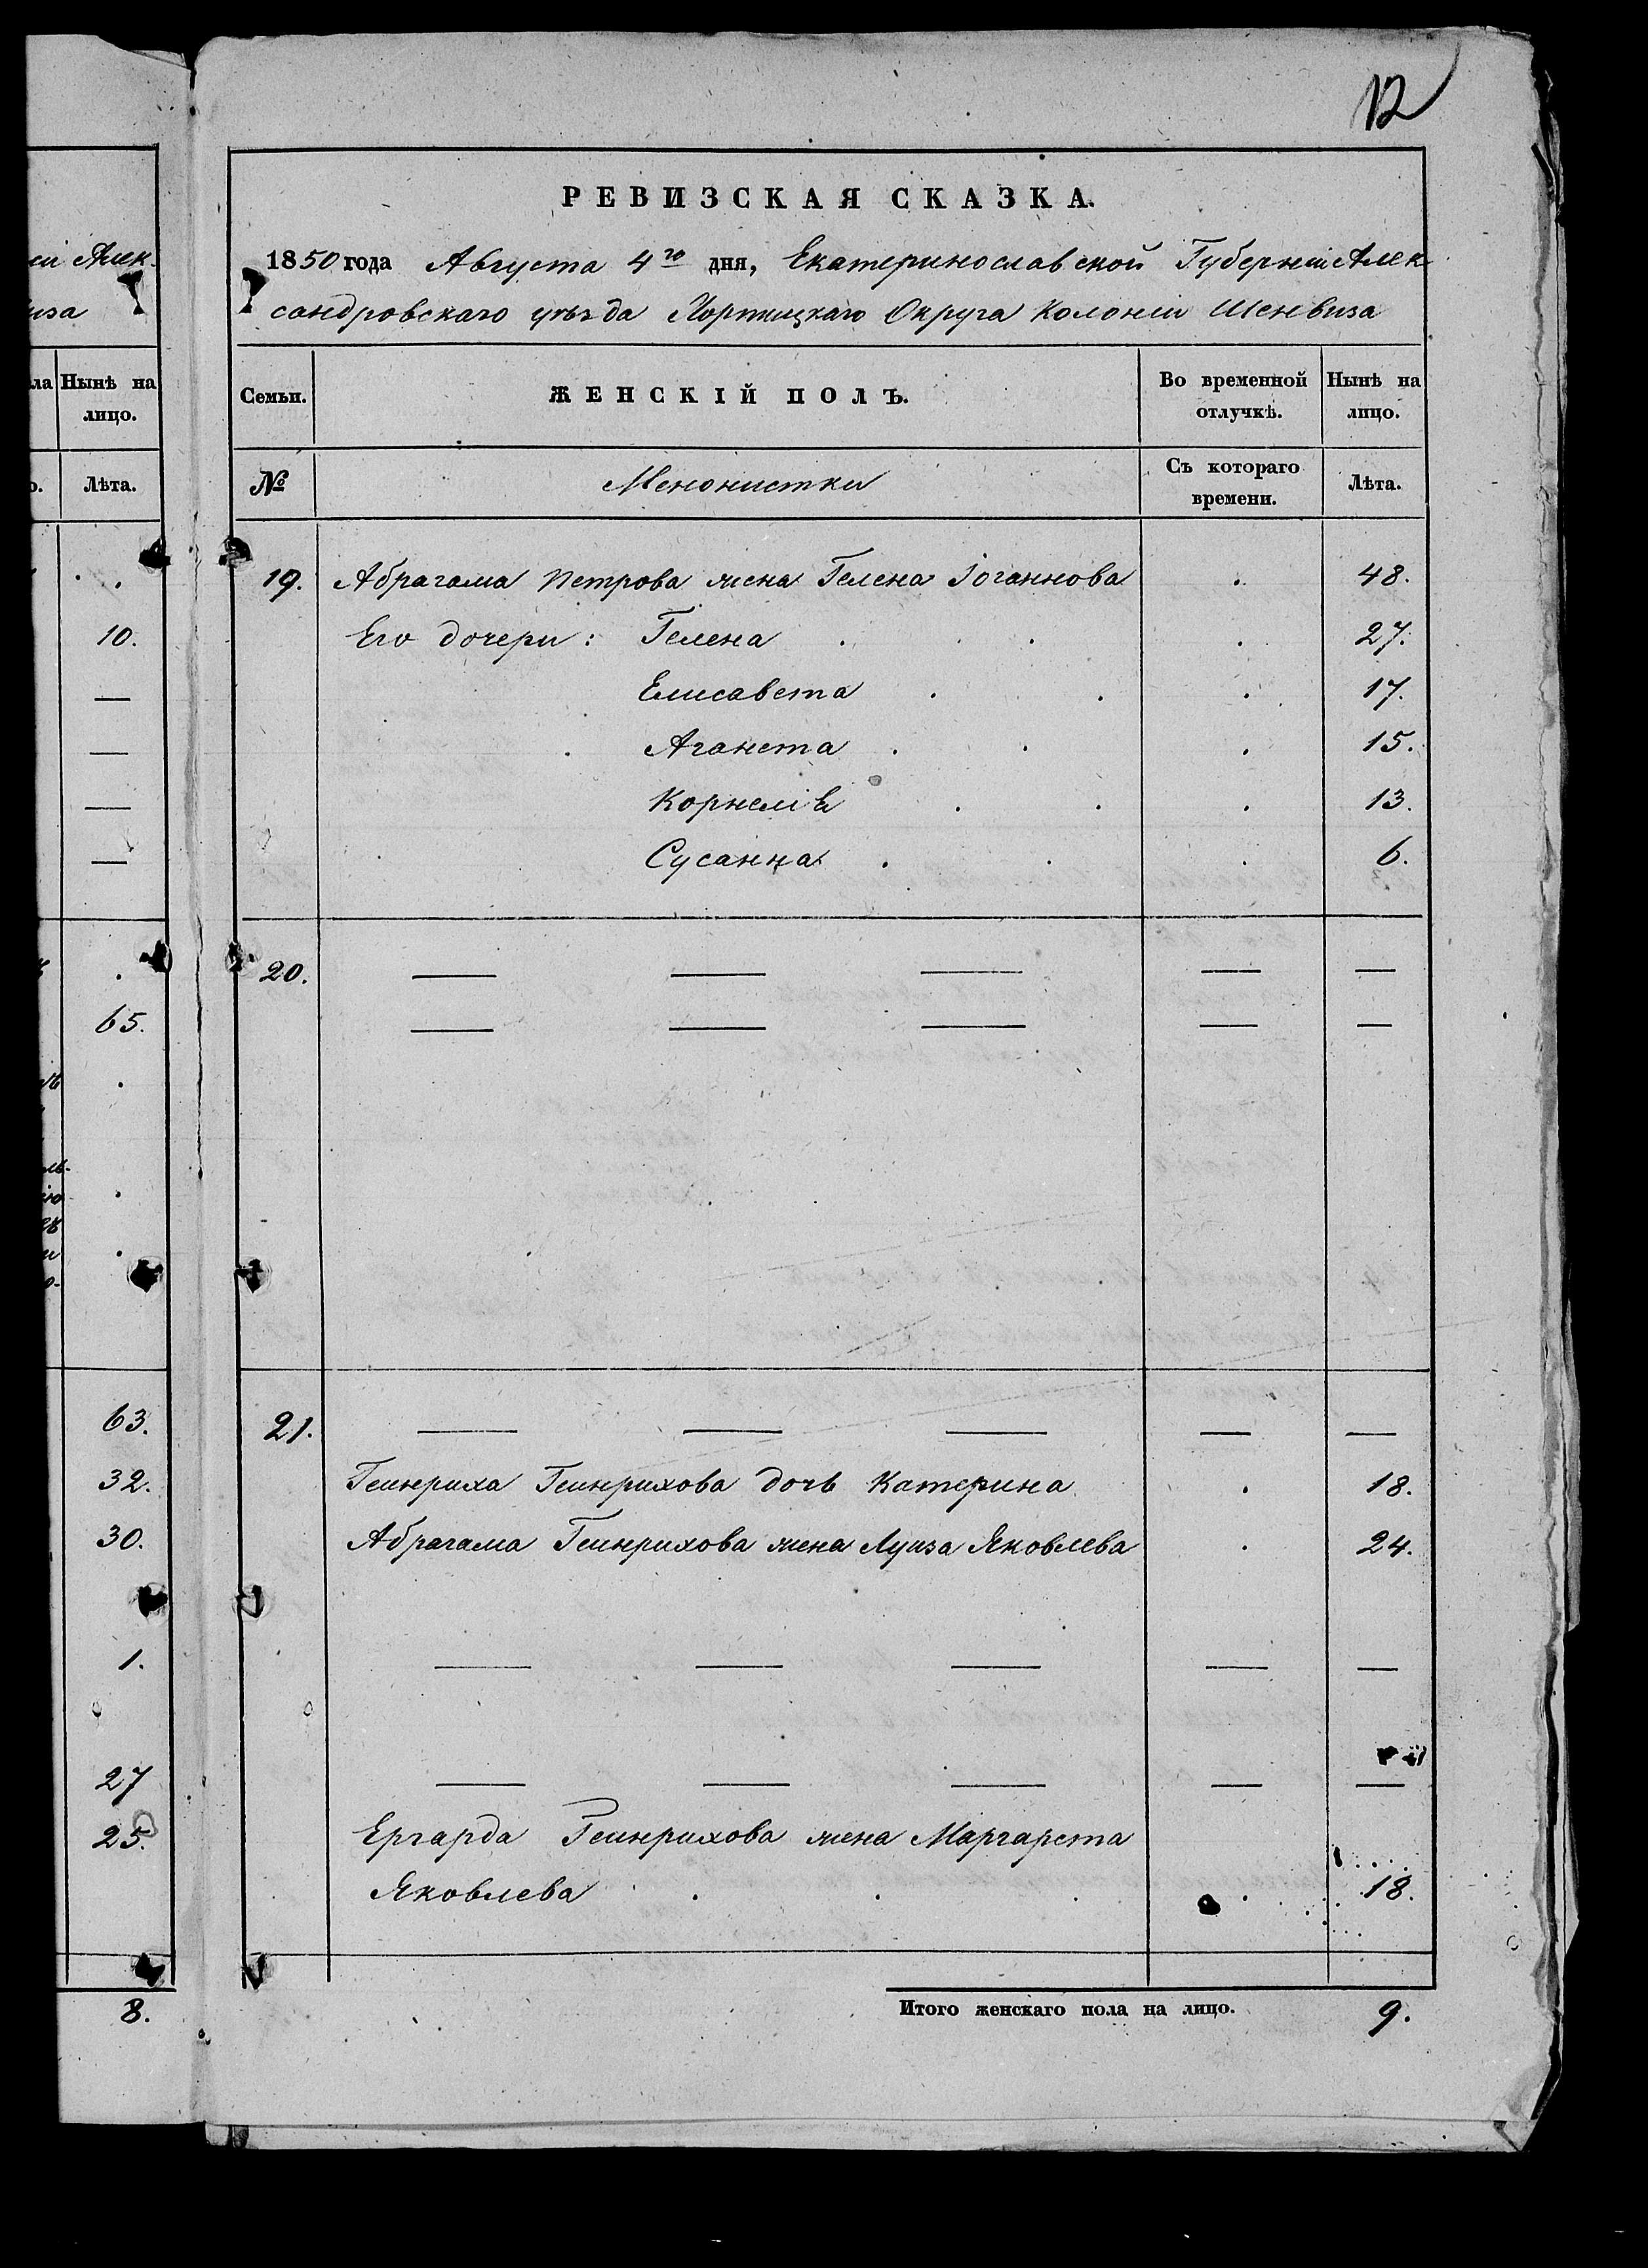 12
РЕВИЗСКАЯ СКАЗКА.
1850 года Августа 4го дня, Екатеринославской Губерніи Алек-
сандровскаго уѣзда Хортицкаго Округа Колоніи Шенвиза
Семьи.
ЖЕНСКІЙ ПОЛЪ.
Во временной отлучкѣ.
Нынѣ на лицо.
№
Менонистки
Съ котораго времени.
Лѣта.
19. Абрагама Петрова жена Гелена Іоганнова . 48.
Его дочери: Гелена . . . 27.
Елисавета . . . 17.
Аганета . . . 15.
Корнелія . . . 13.
Сусанна . . . 6.
20. — — — — —
— — — — —
21. — — — — —
Гейнриха Гейнрихова дочь Катерина . 18.
Абрагама Гейнрихова жена Луиза Яковлева . 24.
— — — — —
— — — — —
Ергарда Гейнрихова жена Маргарета
Яковлева . . . 18.
Итого женскаго пола на лицо. 9.
Алек-
иза
ла
Нынѣ на
лицо.
Лѣта.
10.
—
—
—
—
65.
63.
32.
30.
1.
27
25.
8.